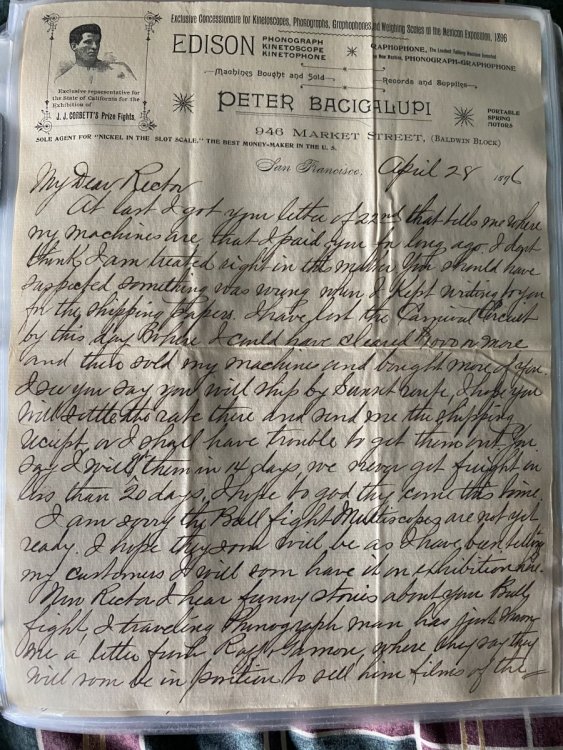 Exclusive Concessionaire for Kinetoscopes, Phonographs, Graphophones, and Weighing Scales at the Mexican Exposition, 1896
EDISON PHONOGRAPH
KINETOSCOPE
KINETOPHONE
GRAPHOPHONE, The Loudest Talking Machine Invented
PHONOGRAPH-GRAPHOPHONE
Machines Bought and Sold
Records and Supplies
Exclusive representative for
the State of California for the
Exhibition of
J. J. CORBETT'S Prize Fights.
PETER BACIGALUPI
PORTABLE
SPRING
MOTORS
946 MARKET STREET, (BALDWIN BLOCK)
SOLE AGENT FOR "NICKEL IN THE SLOT SCALE." THE BEST MONEY-MAKER IN THE U. S.
San Francisco, April 28 1896
My Dear Rector
At last I got your letter of 22nd that tells me where
my machines are, that I paid you for long ago. I dont
think I am treated right in this matter You should have
suspected something was wrong when I kept writing to you
for the shipping papers. I have lost the Carnival Circuit
by this delay where I could have cleared or more
and then sold my machines and bought more of you.
I see you say you will ship by Sunset route, I hope you
will settle the rate there and send me the shipping
receipt or I shall have trouble to get them out. You
say I will them in 14 days, we never get freight in
less than 20 days, I hope to god they come this time.
I am sorry the Bull fight Multiscopes are not yet
ready. I hope they soon will be as I have been telling
my customers I will soon have it on exhibition here.
Now Rector I hear funny stories about your Bull
fight, A traveling Phonograph man has just shown
me a letter from Raff & Gamon, where they say they
will soon be in position to sell him films of the